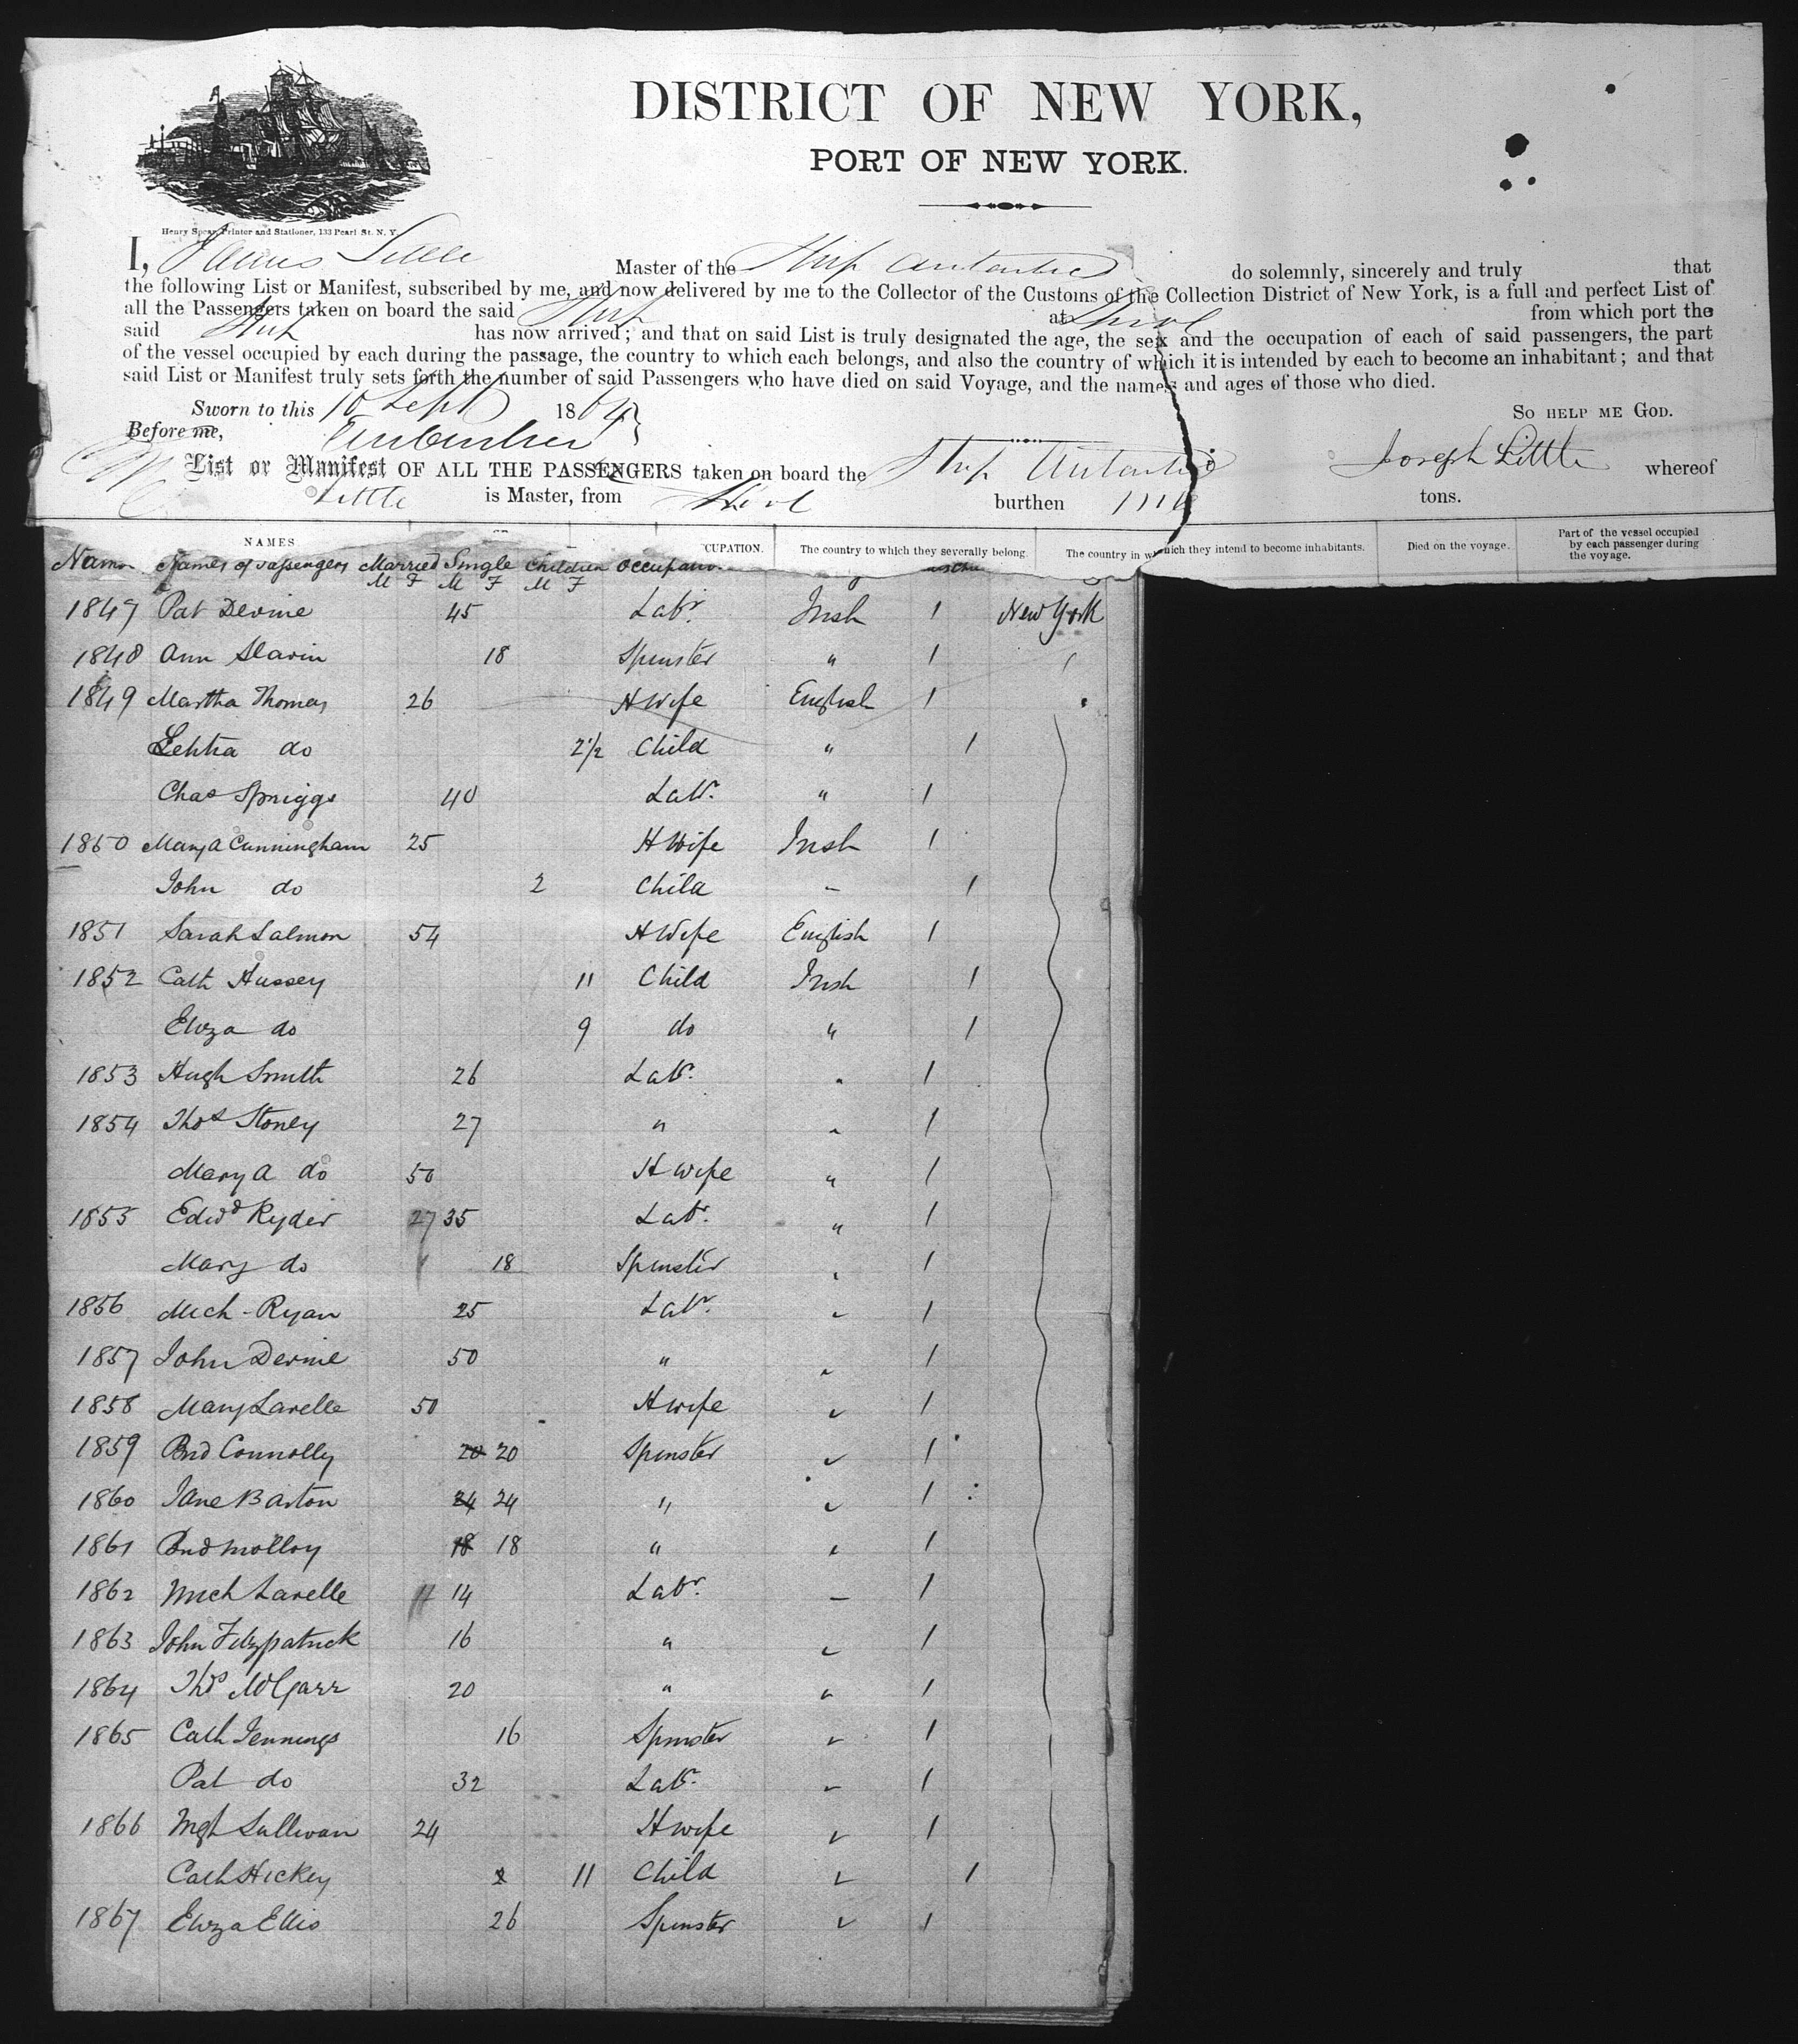 DISTRICT OF NEW YORK,
PORT OF NEW YORK.
Henry Spear, Printer and Stationer, 133 Pearl St. N. Y.
I, James Little Master of the Ship Antarctic do solemnly, sincerely and truly that
the following List or Manifest, subscribed by me, and now delivered by me to the Collector of the Customs of the Collection District of New York, is a full and perfect List of
all the Passengers taken on board the said Ship at Lpool from which port the
said Ship has now arrived; and that on said List is truly designated the age, the sex and the occupation of each of said passengers, the part
of the vessel occupied by each during the passage, the country to which each belongs, and also the country of which it is intended by each to become an inhabitant; and that
said List or Manifest truly sets forth the number of said Passengers who have died on said Voyage, and the names and ages of those who died.
Sworn to this 10 Sept 1864 SO HELP ME GOD.
Before me,
List or Manifest OF ALL THE PASSENGERS taken on board the Ship Antarctic Joseph Little whereof
Little is Master, from Lpool burthen 1116 tons.
NAMES CUPATION. The country to which they severally belong. The country in which they intend to become inhabitants. Died on the voyage. Part of the vessel occupied by each passenger during the voyage.
Names of passengers Married Single Children Occupation
M F M F M F
1847 Pat Devine 45 Labr. Irish 1 New York
1848 Ann Slavin 18 Spinster " 1
1849 Martha Thomas 26 H Wife English 1
do 2½ Child " 1
Chas Spriggs 40 Labr. " 1
1850 Mary A Cunningham 25 H Wife Irish 1
John do 2 Child - 1
1851 Sarah Salmon 54 H Wife English 1
1852 Cath Hussey 11 Child Irish 1
Eliza do 9 do " 1
1853 Hugh Smith 26 Labr. " 1
1854 Thos Stoney 27 " " 1
Mary A do 50 H wife " 1
1855 Edwd Ryder 27 35 Labr. " 1
Mary do 18 Spinster " 1
1856 Mich - Ryan 25 Labr. " 1
1857 John Devine 50 " " 1
1858 Mary Lavelle 50 H wife " 1
1859 Brid Connolly 20 20 Spinster " 1
1860 Jane Barton 24 24 " " 1
1861 Brid Molloy 18 18 " " 1
1862 Mich Lavelle 14 Labr. - 1
1863 John Fitzpatrick 16 " " 1
1864 Thos McGarr 20 " " 1
1865 Cath Jennings 16 Spinster " 1
Pat do 32 Labr. " 1
1866 Mgt Sullivan 24 H wife " 1
Cath Hickey 11 Child " 1
1867 Eliza Ellis 26 Spinster " 1